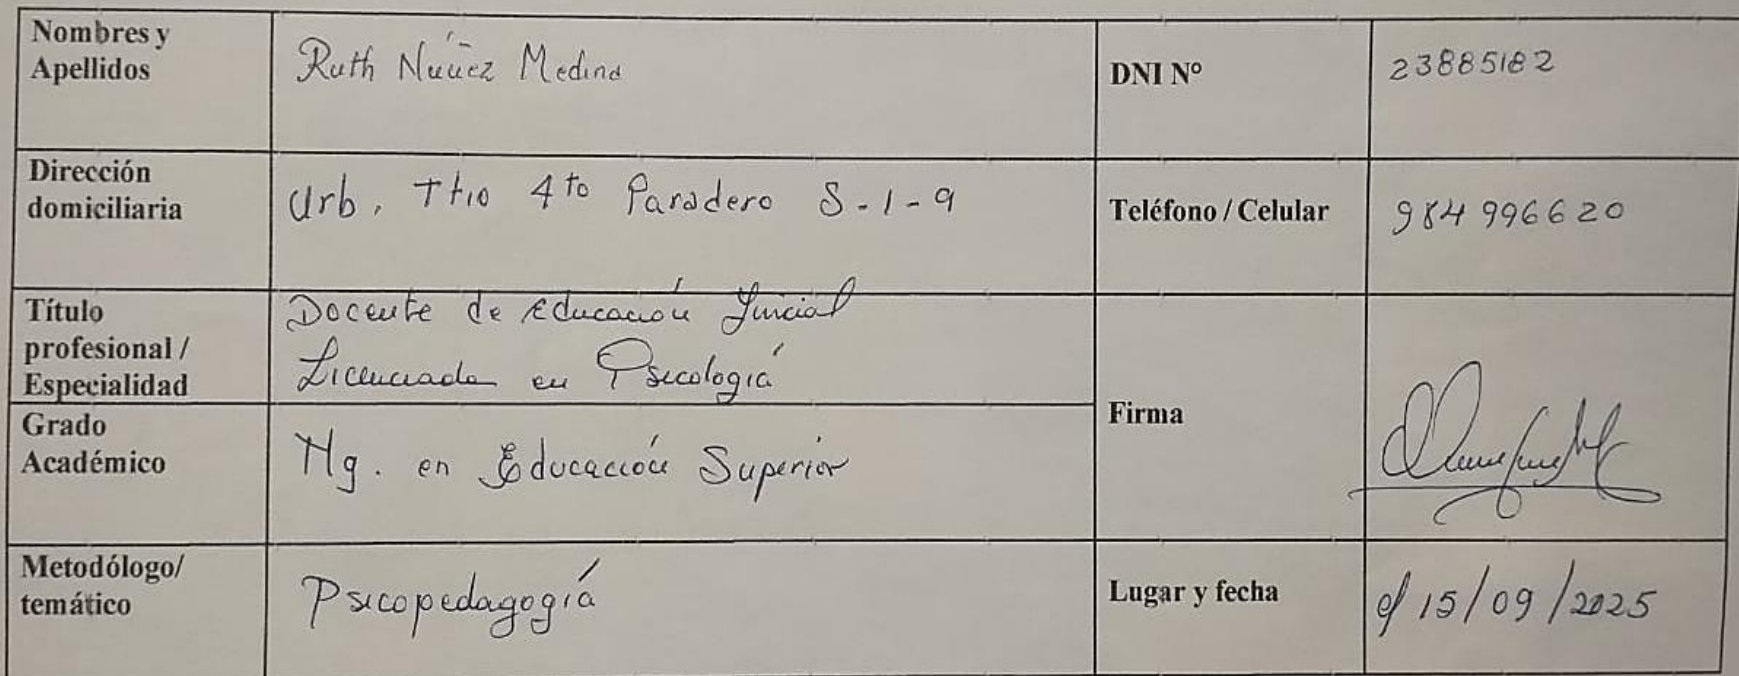 Nombres y
Apellidos
Ruth Núñez Medina
DNI Nº
23885182
Dirección
domiciliaria
Urb. Ttio 4to Paradero S-1-9
Teléfono / Celular
984 996620
Título
profesional /
Especialidad
Docente de Educación Inicial
Licenciada en Psicología
Firma
Grado
Académico
Mg. en Educación Superior
Metodólogo/
temático
Psicopedagogía
Lugar y fecha
15/09/2025